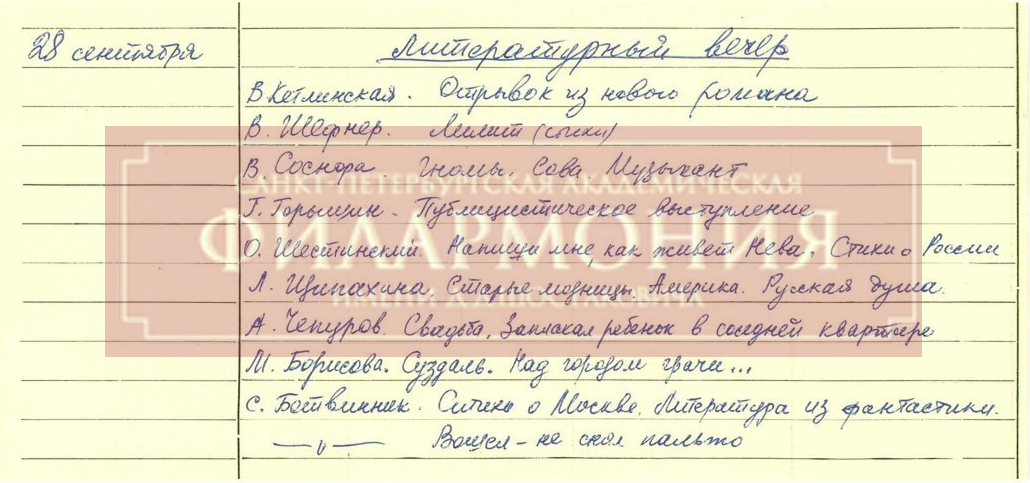 28 сентября Литературный вечер
В. Кетлинская. Отрывок из нового романа
В. Шефнер. Лилит (стихи)
В. Соснора. Гномы. Сова. Музыкант
САНКТ-ПЕТЕРБУРГСКАЯ АКАДЕМИЧЕСКАЯ
Г. Горышин. Публицистическое выступление
ФИЛАРМОНИЯ
О. Шестинский. Напиши мне, как живет Нева. Стихи о России
Л. Щипахина. Старые модницы. Америка. Русская душа.
ИМЕНИ Д.Д. ШОСТАКОВИЧА
А. Чепуров. Свадьба. Заплакал ребенок в соседней квартире
М. Борисова. Суздаль. Над городом грачи...
С. Ботвинник. Стихи о Москве. Литература из фантастики.
—〃— Вошел – не снял пальто